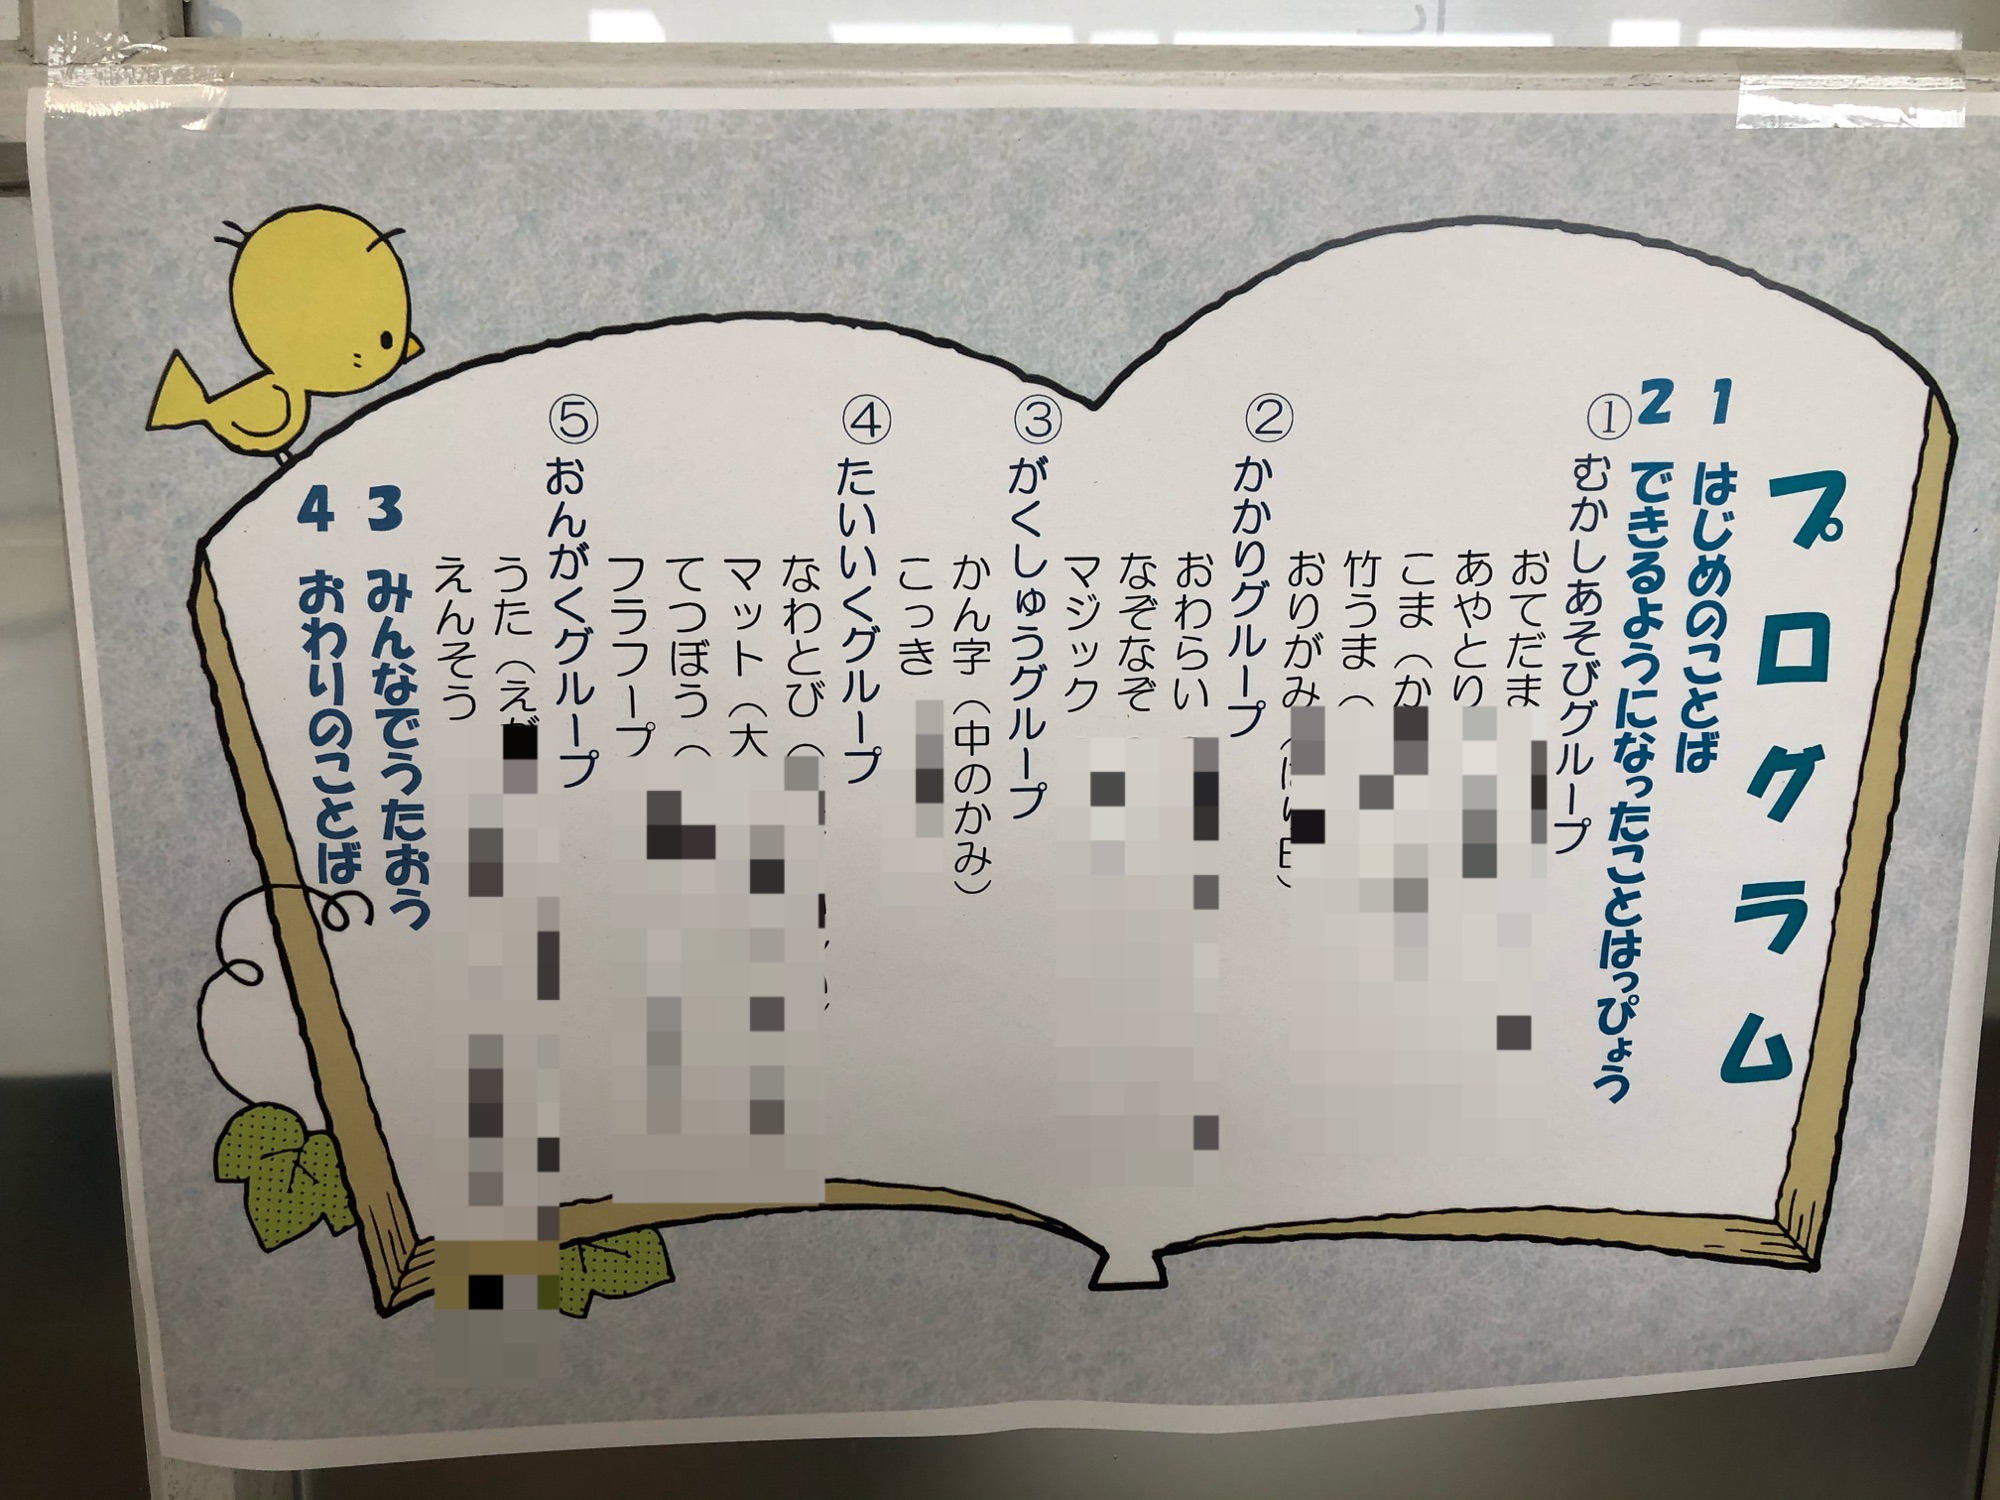 プログラム
1 はじめのことば
2 できるようになったことはっぴょう
① むかしあそびグループ
おてだま
あやとり
こま（か
竹うま（
おりがみ
② かかりグループ
おわらい
なぞなぞ
マジック
③ がくしゅうグループ
かん字（中のかみ）
こっき
④ たいいくグループ
なわとび（
マット（大
てつぼう（
フラフープ
⑤ おんがくグループ
うた（え
えんそう
3 みんなでうたおう
4 おわりのことば